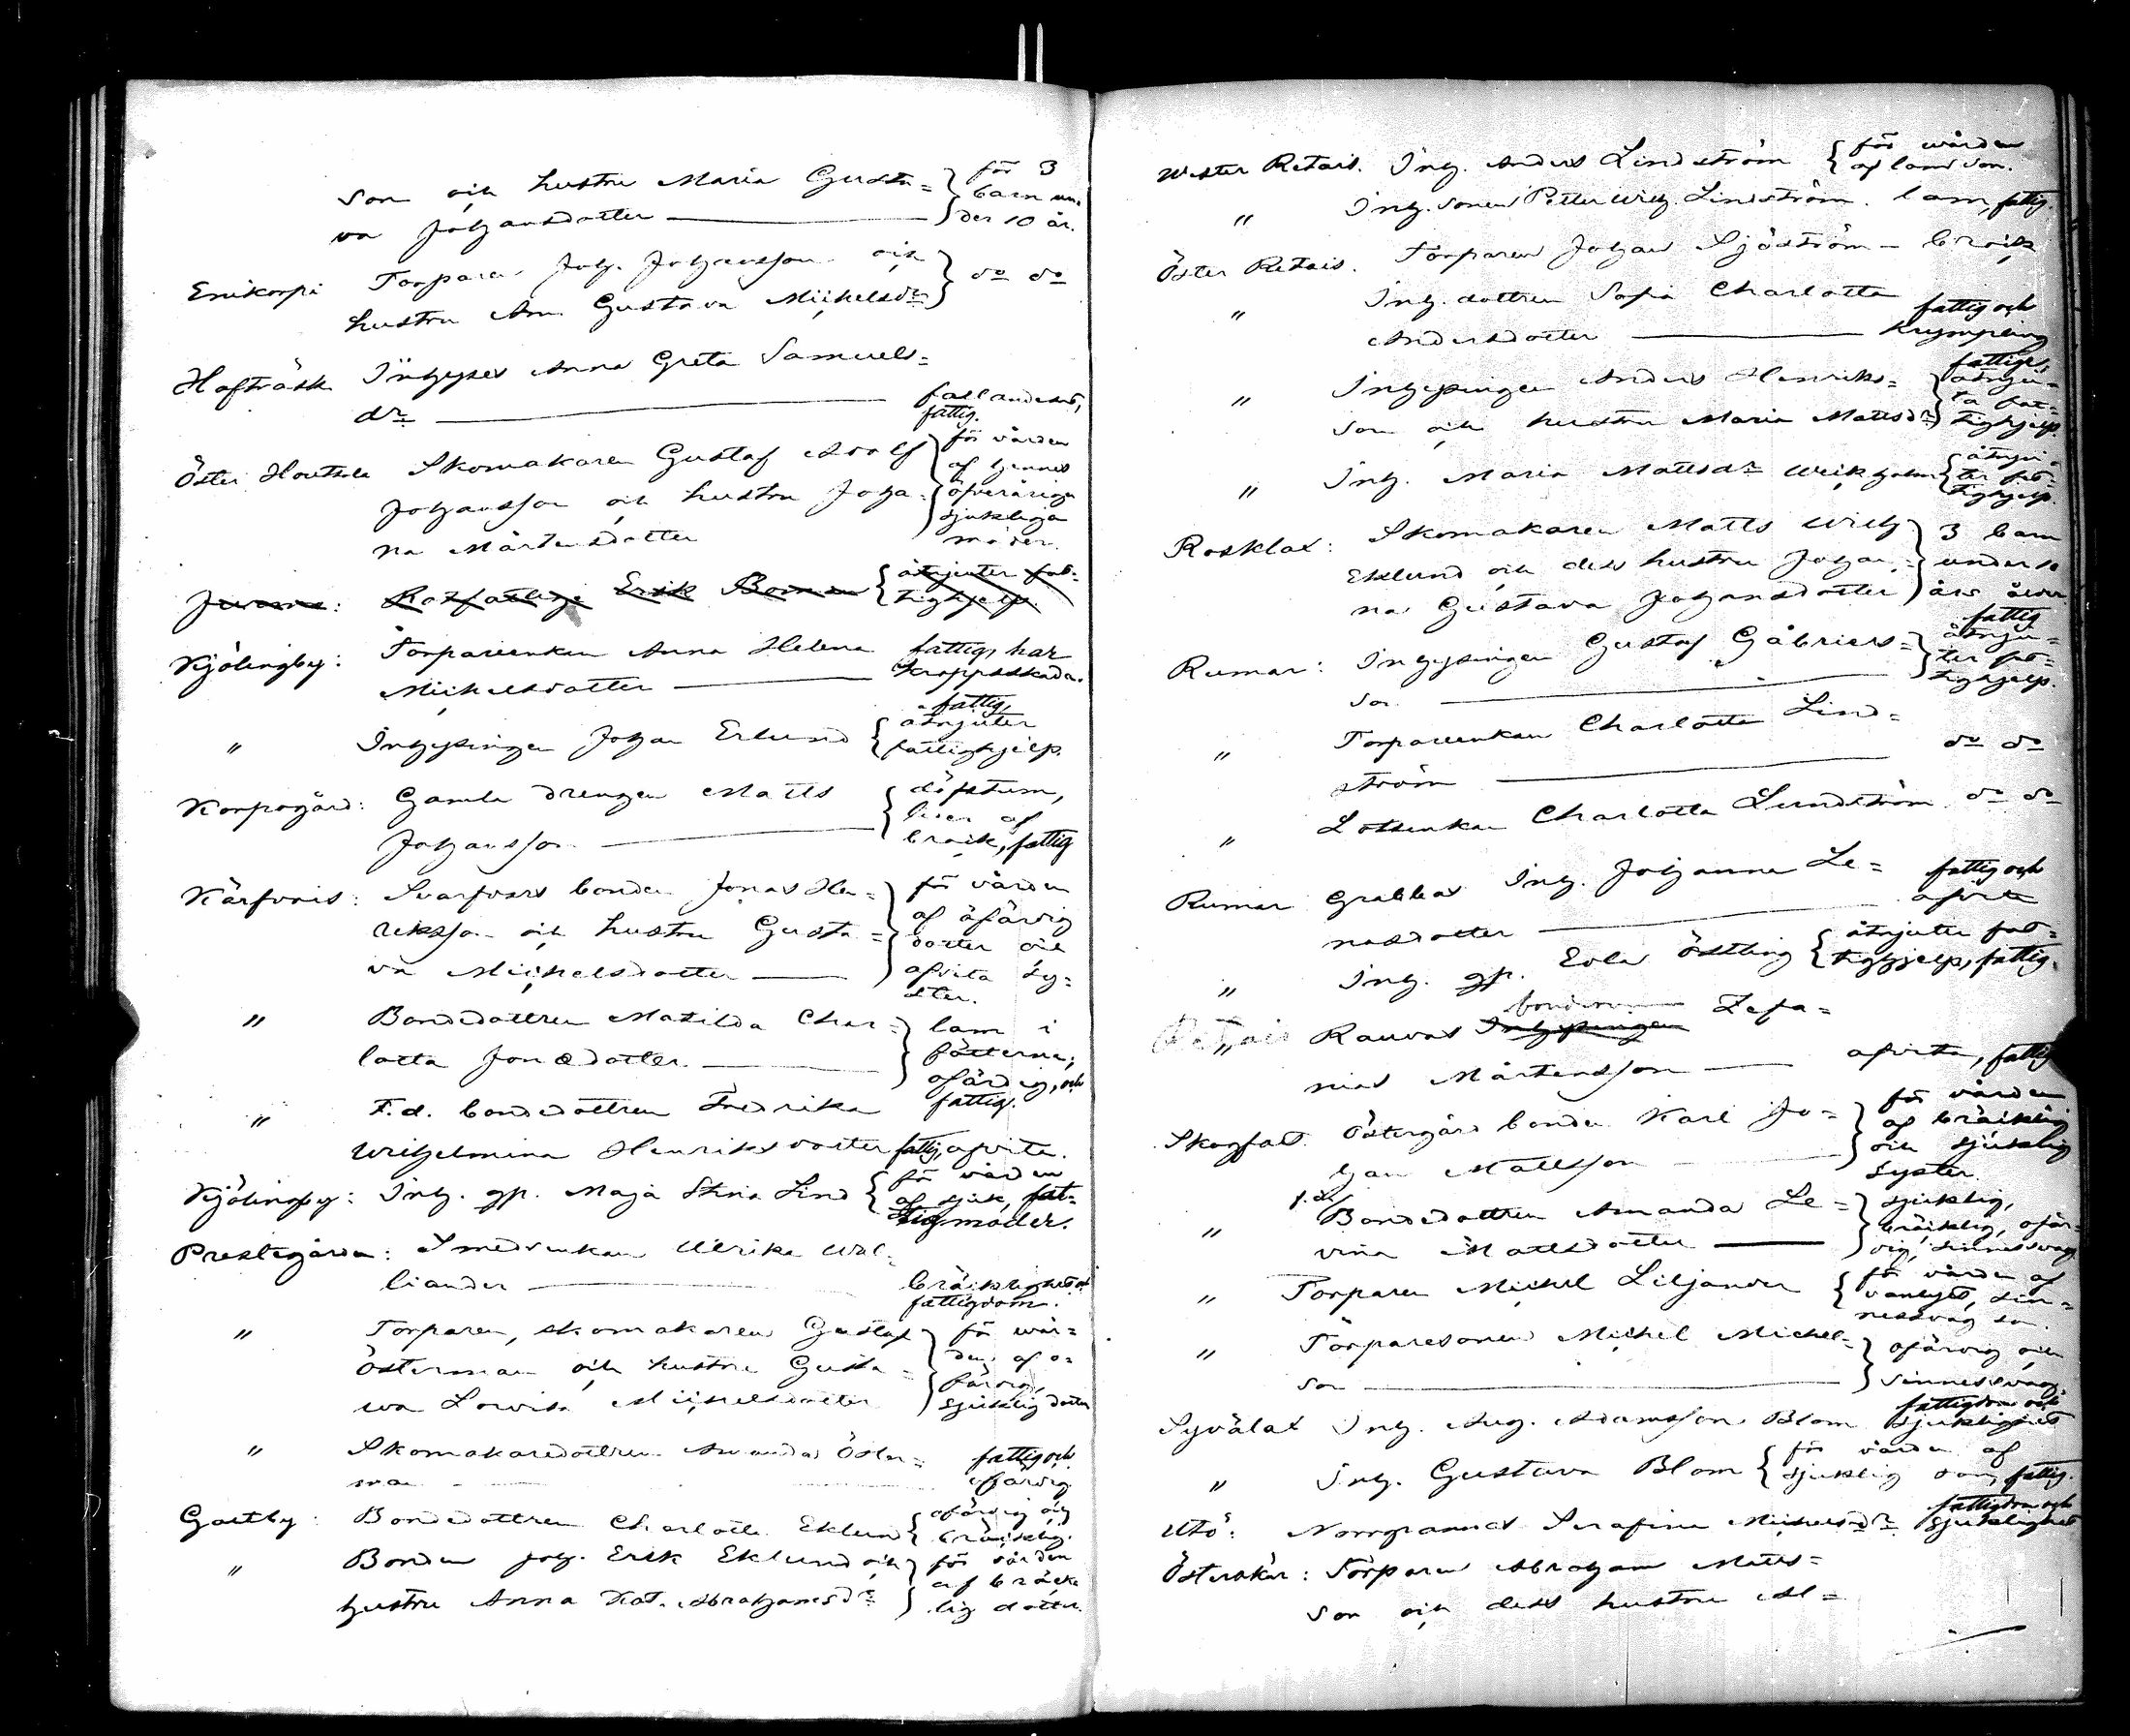 son och hustru Maria Gusta= } för 3
va Johansdotter ——— } barn un=
der 10 år.
Enikorpi Torparen Joh. Johansson och } do do
hustru Ann Gustava Michelsdr }
Hafträsk Inhyses Anna Greta Samuels=
dr ——— fallandesot,
fattig.
Öster Houtskär Skomakaren Gustaf Adolf } för vården
Johansson och hustru Joha= } af hennes
na Mårtensdotter öfveråriga
sjukliga
moder.
Rotfattige Erik Boman { åtnjuter fat=
tighjelp.
Kjölingby: Torpareenkan Anna Helena fattig, har
Michelsdotter ——— kroppsskada.
" Inhysingen Johan Erlund { fattig,
åtnjuter
fattighjelp.
Korpogård: Gamla drengen Matts { döfstum,
Johansson ——— lider af
bråck, fattig
Kärfvois: Svarfvars bonden Jonas Hen= } för vården
riksson och hustru Gusta= } af ofärdig
va Michelsdotter ——— dotter och
afvita sy=
ster.
" Bondedottren Matilda Char= } lam i
lotta Jonedotter. ——— } fötterna,
ofärdig, och
fattig.
" F.d. bondedottren Fredrika
Wilhelmina Henriksdotter fattig, afvita.
Kjölingby: Inh. gp. Maja Stina Lind { för vården
af sjuk, fat=
tig moder.
Prestegården: Smedsenkan Ulrika Wal=
liander ——— bräcklighet o.
fattigdom.
" Torparen, skomakaren Gustaf } för vår=
Österman och hustru Gusta= } den af o=
va Lovisa Michelsdotter } färdig,
sjuklig dotter
" Skomakaredottren Amanda Öster= fattig och
man ——— ofärdig
Galtby: Bondedottren Charlotta Eklund { ofärdig och
bräcklig.
" Bonden Joh. Erik Eklund och } för vården
hustru Anna Kat. Abrahamsdr } af bräck=
lig dotter.
Wester Retais. Inh. Anders Lindström { för vården
af lam son.
" Inh. sonen Petter Wilh. Lindström. lam, fattig.
Öster Retais. Torparen Johan Sjöström — bråck
" Inh. dottren Sofia Charlotta
Andersdotter ——— fattig och
krympling
" Inhysingen Anders Henriks= } fattiga,
son och hustru Maria Mattsdr } åtnju=
ta fat=
tighjelp.
" Inh. Maria Mattsdr Wickholm { åtnju=
ter fat=
tighjelp.
Rosklax: Skomakaren Matts Wilh } 3 barn
Eklund och dess hustru Johan= } under 10
na Gustava Johansdotter } års ålder.
Rumar: Inhysingen Gustaf Gabriels= } fattig
son ——— åtnju=
ter fat=
tighjelp.
" Torpareenkan Charlotta Lind=
ström ——— do do
" Lotsenkan Charlotta Lundström do do
Rumar Grabbas Inh. Johanna Le= fattig och
nasdotter ——— afvita
" Inh. gp. Eva Östling { åtnjuter fat=
tighjelp, fattig.
bonden
Retais Rauvas Inhysingen Zefa=
nias Mårtensson ——— afvita, fattig
Skogfat. Östergård bonden Karl Jo= } för vården
han Mattsson ——— } af bräcklig
och sjuklig
syster.
" f.d. Bondedottren Amanda Le= } sjuklig,
vina Mattsdotter ——— } bräcklig, ofär=
dig, sinnessvag
" Torparen Michel Liljander { för vården af
vanlytt, sin=
nessvag son.
" Torparesonen Michel Michels= } ofärdig och
son ——— } sinnessvag.
Syvälax Inh. Aug. Adamsson Blom fattigdom och
sjuklighet
" Inh. Gustava Blom { för vården af
sjuklig son, fattig.
Utö: Norrgrannas Serafina Michelsdr fattigdom och
sjuklighet
Österskär: Torparen Abraham Matts=
son och dess hustru Al=